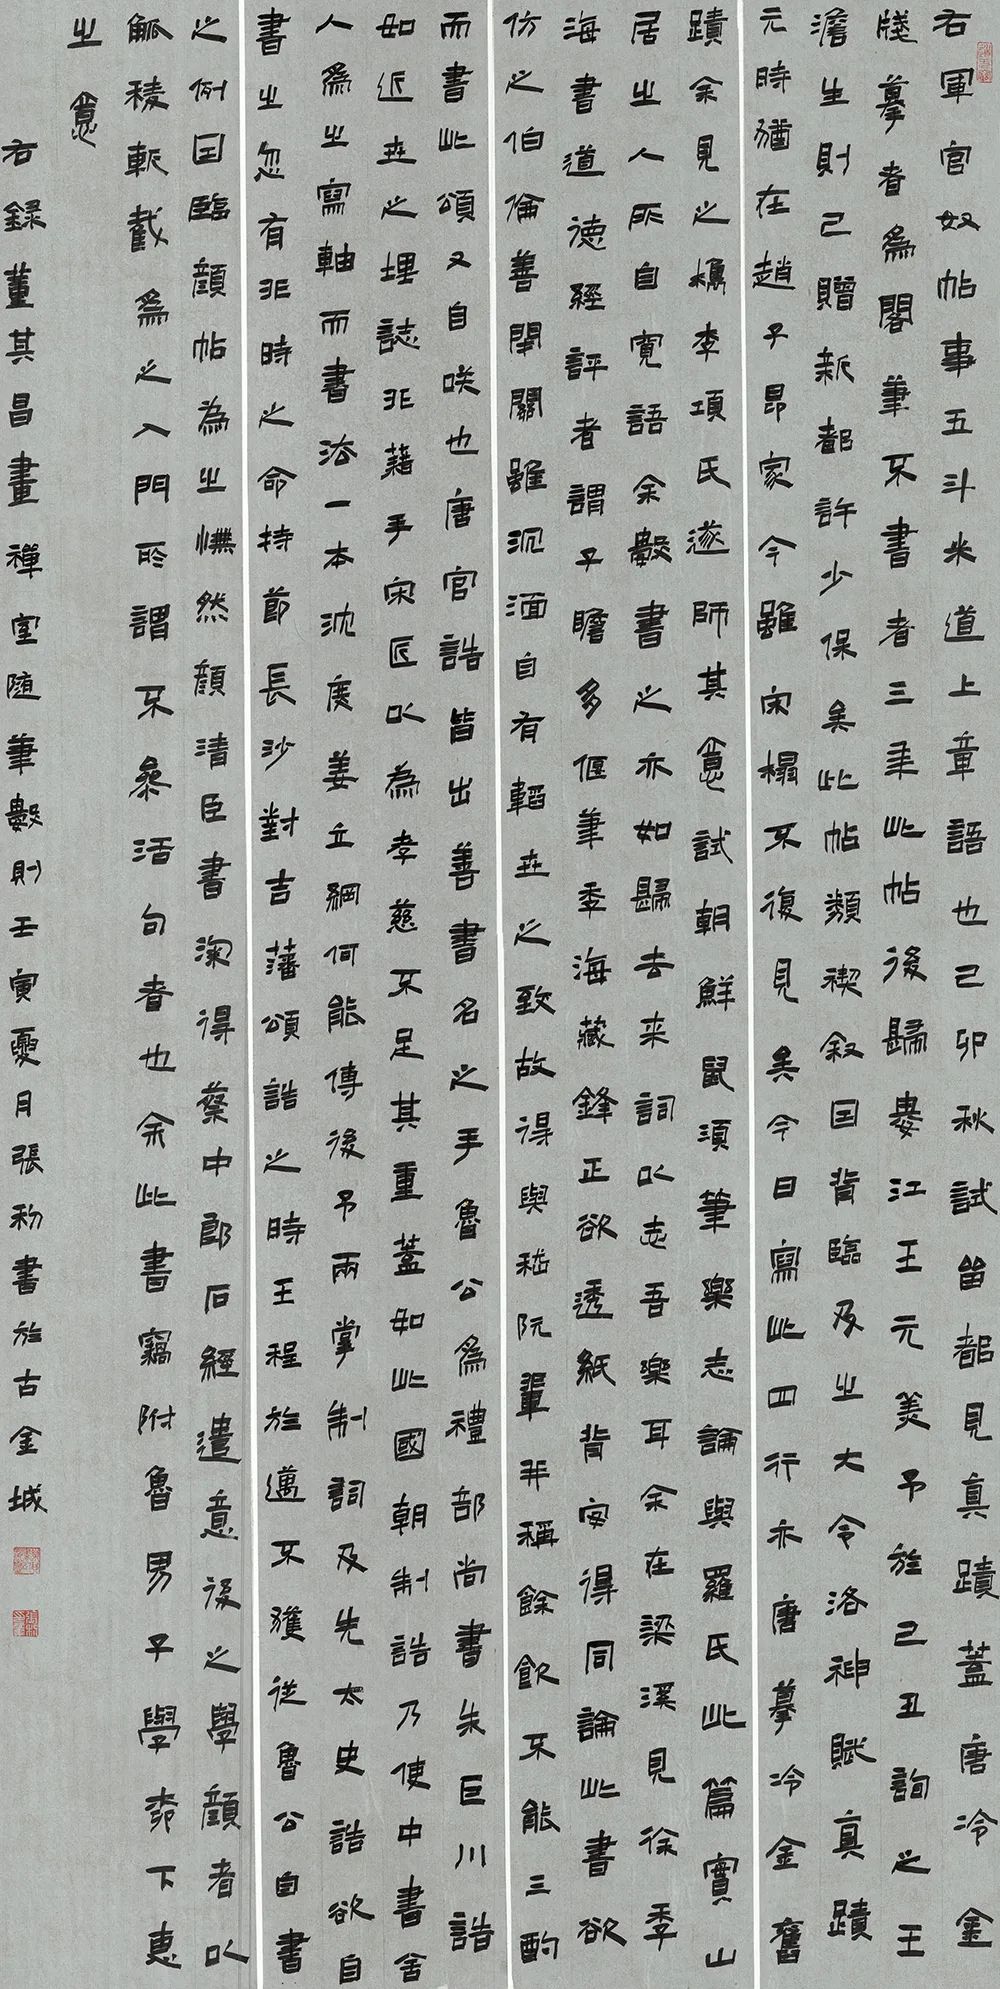 右軍官奴帖事五斗米道上章語也己卯秋試留都見真蹟蓋唐冷金
牋摹者為閣筆不書者三年此帖後歸婁江王元美予於己丑詢之王
澹生則已贈新都許少保矣此帖類禊叙因背臨及之大令洛神賦真蹟
元時猶在趙子昂家今雖宋榻不復見矣今日寫此四行亦唐摹冷金舊
蹟余見之檇李項氏遂師其意試朝鮮鼠須筆樂志論與羅氏此篇實山
居之人所自寬語余數書之亦如歸去来詞以志吾樂耳余在梁溪見徐季
海書道德經評者謂子瞻多偃筆季海藏鋒正欲透紙背安得同論此書欲
仿之伯倫善閉關雖沉湎自有韜世之致故得與嵇阮輩並稱餘飲不能三酌
而書此頌又自咲也唐官誥皆出善書名之手魯公為禮部尚書朱巨川誥
如近世之埋誌非藉手宋匠以為孝慈不足其重蓋如此國朝制誥乃使中書舍
人為之寫軸而書法一本沈度姜立綱何能傳後予兩掌制詞及先太史誥欲自
書之忽有非時之命持節長沙對吉藩頌誥之時王程於邁不獲從魯公自書
之例因臨顏帖為之憮然顏清臣書深得蔡中郎石經遺意後之學顏者以
觚稜斬截為之入門所謂不參活句者也余此書竊附魯男子學柳下惠
之意
右錄董其昌畫禪室隨筆數則壬寅夏月張礽書於古金城